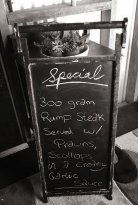 Special
300 gram
Rump Steak
Served w/
Prawns,
Scallops
in a Creamy
Garlic
Sauce